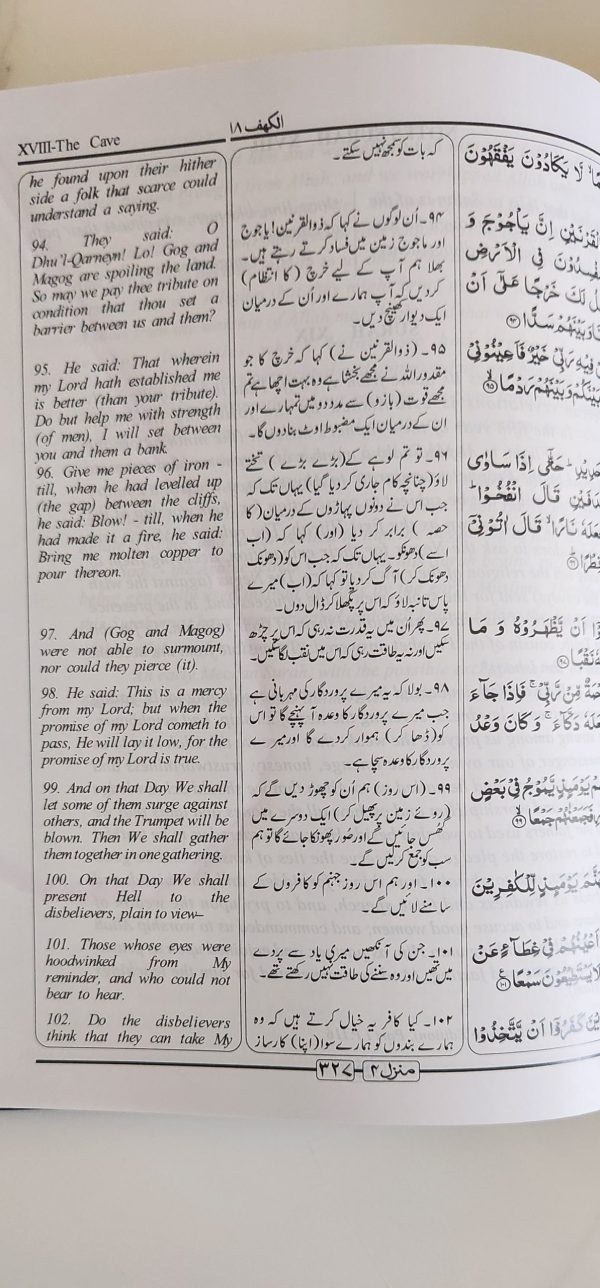 XVIII-The Cave
الکهف ۱۸
he found upon their hither
side a folk that scarce could
understand a saying.
94. They said: O
Dhu'l-Qarneyn! Lo! Gog and
Magog are spoiling the land.
So may we pay thee tribute on
condition that thou set a
barrier between us and them?
95. He said: That wherein
my Lord hath established me
is better (than your tribute).
Do but help me with strength
(of men), I will set between
you and them a bank.
96. Give me pieces of iron -
till, when he had levelled up
(the gap) between the cliffs,
he said: Blow! - till, when he
had made it a fire, he said:
Bring me molten copper to
pour thereon.
97. And (Gog and Magog)
were not able to surmount,
nor could they pierce (it).
98. He said: This is a mercy
from my Lord; but when the
promise of my Lord cometh to
pass, He will lay it low, for the
promise of my Lord is true.
99. And on that Day We shall
let some of them surge against
others, and the Trumpet will be
blown. Then We shall gather
them together in one gathering.
100. On that Day We shall
present Hell to the
disbelievers, plain to view–
101. Those whose eyes were
hoodwinked from My
reminder, and who could not
bear to hear.
102. Do the disbelievers
think that they can take My
کہ بات کو سمجھ نہیں سکتے۔
۹۴۔ اُن لوگوں نے کہا کہ ذوالقرنین! یاجوج
اور ماجوج زمین میں فساد کرتے رہتے ہیں۔
بھلا ہم آپ کے لیے خرچ (کا انتظام)
کردیں کہ آپ ہمارے اور اُن کے درمیان
ایک دیوار کھینچ دیں۔
۹۵۔ (ذوالقرنین نے) کہا کہ خرچ کا جو
مقدور اللہ نے مجھے بخشا ہے وہ بہت اچھا ہے تم
مجھے قوت (بازو) سے مدد دو میں تمہارے اور
ان کے درمیان ایک مضبوط اوٹ بنا دوں گا۔
۹۶۔ تو تم لوہے کے (بڑے بڑے) تختے
لاؤ (چنانچہ کام جاری کردیا گیا) یہاں تک کہ
جب اس نے دونوں پہاڑوں کے درمیان (کا
حصہ) برابر کر دیا (اور) کہا کہ (اب
اسے) دھونکو۔ یہاں تک کہ جب اس کو (دھونک
دھونک کر) آگ کر دیا تو کہا کہ (اب) میرے
پاس تانبہ لاؤ کہ اس پر پگھلا کر ڈال دوں۔
۹۷۔ پھر اُن میں یہ قدرت نہ رہی کہ اس پر چڑھ
سکیں اور نہ یہ طاقت رہی کہ اس میں نقب لگا سکیں۔
۹۸۔ بولا کہ یہ میرے پروردگار کی مہربانی ہے
جب میرے پروردگار کا وعدہ آ پہنچے گا تو اس
کو (ڈھا کر) ہموار کر دے گا اور میرے
پروردگار کا وعدہ سچا ہے۔
۹۹۔ (اس روز) ہم اُن کو چھوڑ دیں گے کہ
(روئے زمین پر پھیل کر) ایک دوسرے میں
گھُس جائیں گے اور صُور پھونکا جائے گا تو ہم
سب کو جمع کر لیں گے۔
۱۰۰۔ اور ہم اس روز جہنم کو کافروں کے
سامنے لائیں گے۔
۱۰۱۔ جن کی آنکھیں میری یاد سے پردے
میں تھیں اور وہ سننے کی طاقت نہیں رکھتے تھے۔
۱۰۲۔ کیا کافر یہ خیال کرتے ہیں کہ وہ
ہمارے بندوں کو ہمارے سوا (اپنا) کارساز
لَا يَكَادُوْنَ يَفْقَهُوْنَ
اِنَّ يَاْجُوْجَ وَ
فِي الْاَرْضِ
لَكَ خَرْجًا عَلٰٓى اَنْ
وَبَيْنَهُمْ سَدًّا ۹۴
فِيْهِ رَبِّيْ خَيْرٌ فَاَعِيْنُوْنِيْ
وَبَيْنَهُمْ رَدْمًا ۹۵
حَتّٰٓى اِذَا سَاوٰى
قَالَ انْفُخُوْا
نَارًا قَالَ اٰتُوْنِيْٓ
۹۶
اَنْ يَّظْهَرُوْهُ وَ مَا
۹۷
مِّنْ رَّبِّيْ فَاِذَا جَآءَ
دَكَّآءَ وَكَانَ وَعْدُ
يَوْمَىِٕذٍ يَّمُوْجُ فِيْ بَعْضٍ
فَجَمَعْنٰهُمْ جَمْعًا ۹۹
يَوْمَىِٕذٍ لِّلْكٰفِرِيْنَ
اَعْيُنُهُمْ فِيْ غِطَآءٍ عَنْ
لَا يَسْتَطِيْعُوْنَ سَمْعًا ۱۰۱
كَفَرُوْٓا اَنْ يَّتَّخِذُوْا
منزل ۴
۳۲۷